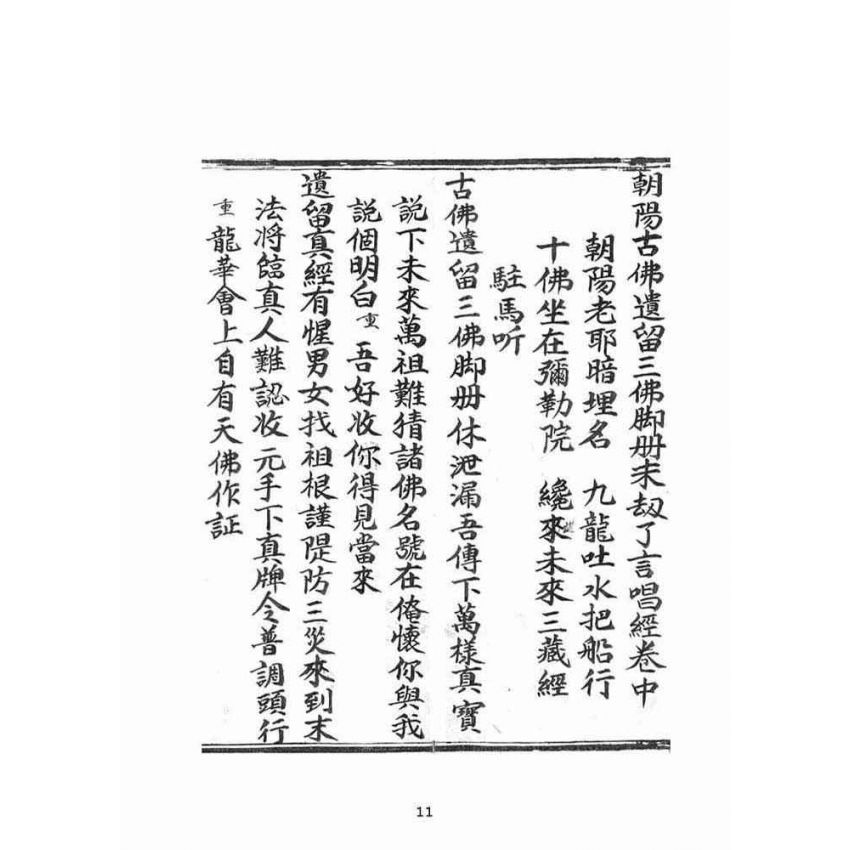 朝陽古佛遺留三佛脚册末刼了言唱經卷中
朝陽老耶暗埋名 九龍吐水把船行
十佛坐在彌勒院 纔來未來三藏經
駐馬听
古佛遺留三佛脚册休泄漏吾傳下萬樣真寶
說下未來萬祖難猜諸佛名號在俺懷你與我
說個明白重吾好收你得見當來
遺留真經有惺男女找祖根謹隄防三災來到末
法将臨真人難認收元手下真牌令普調頭行
重龍華會上自有天佛作証
11